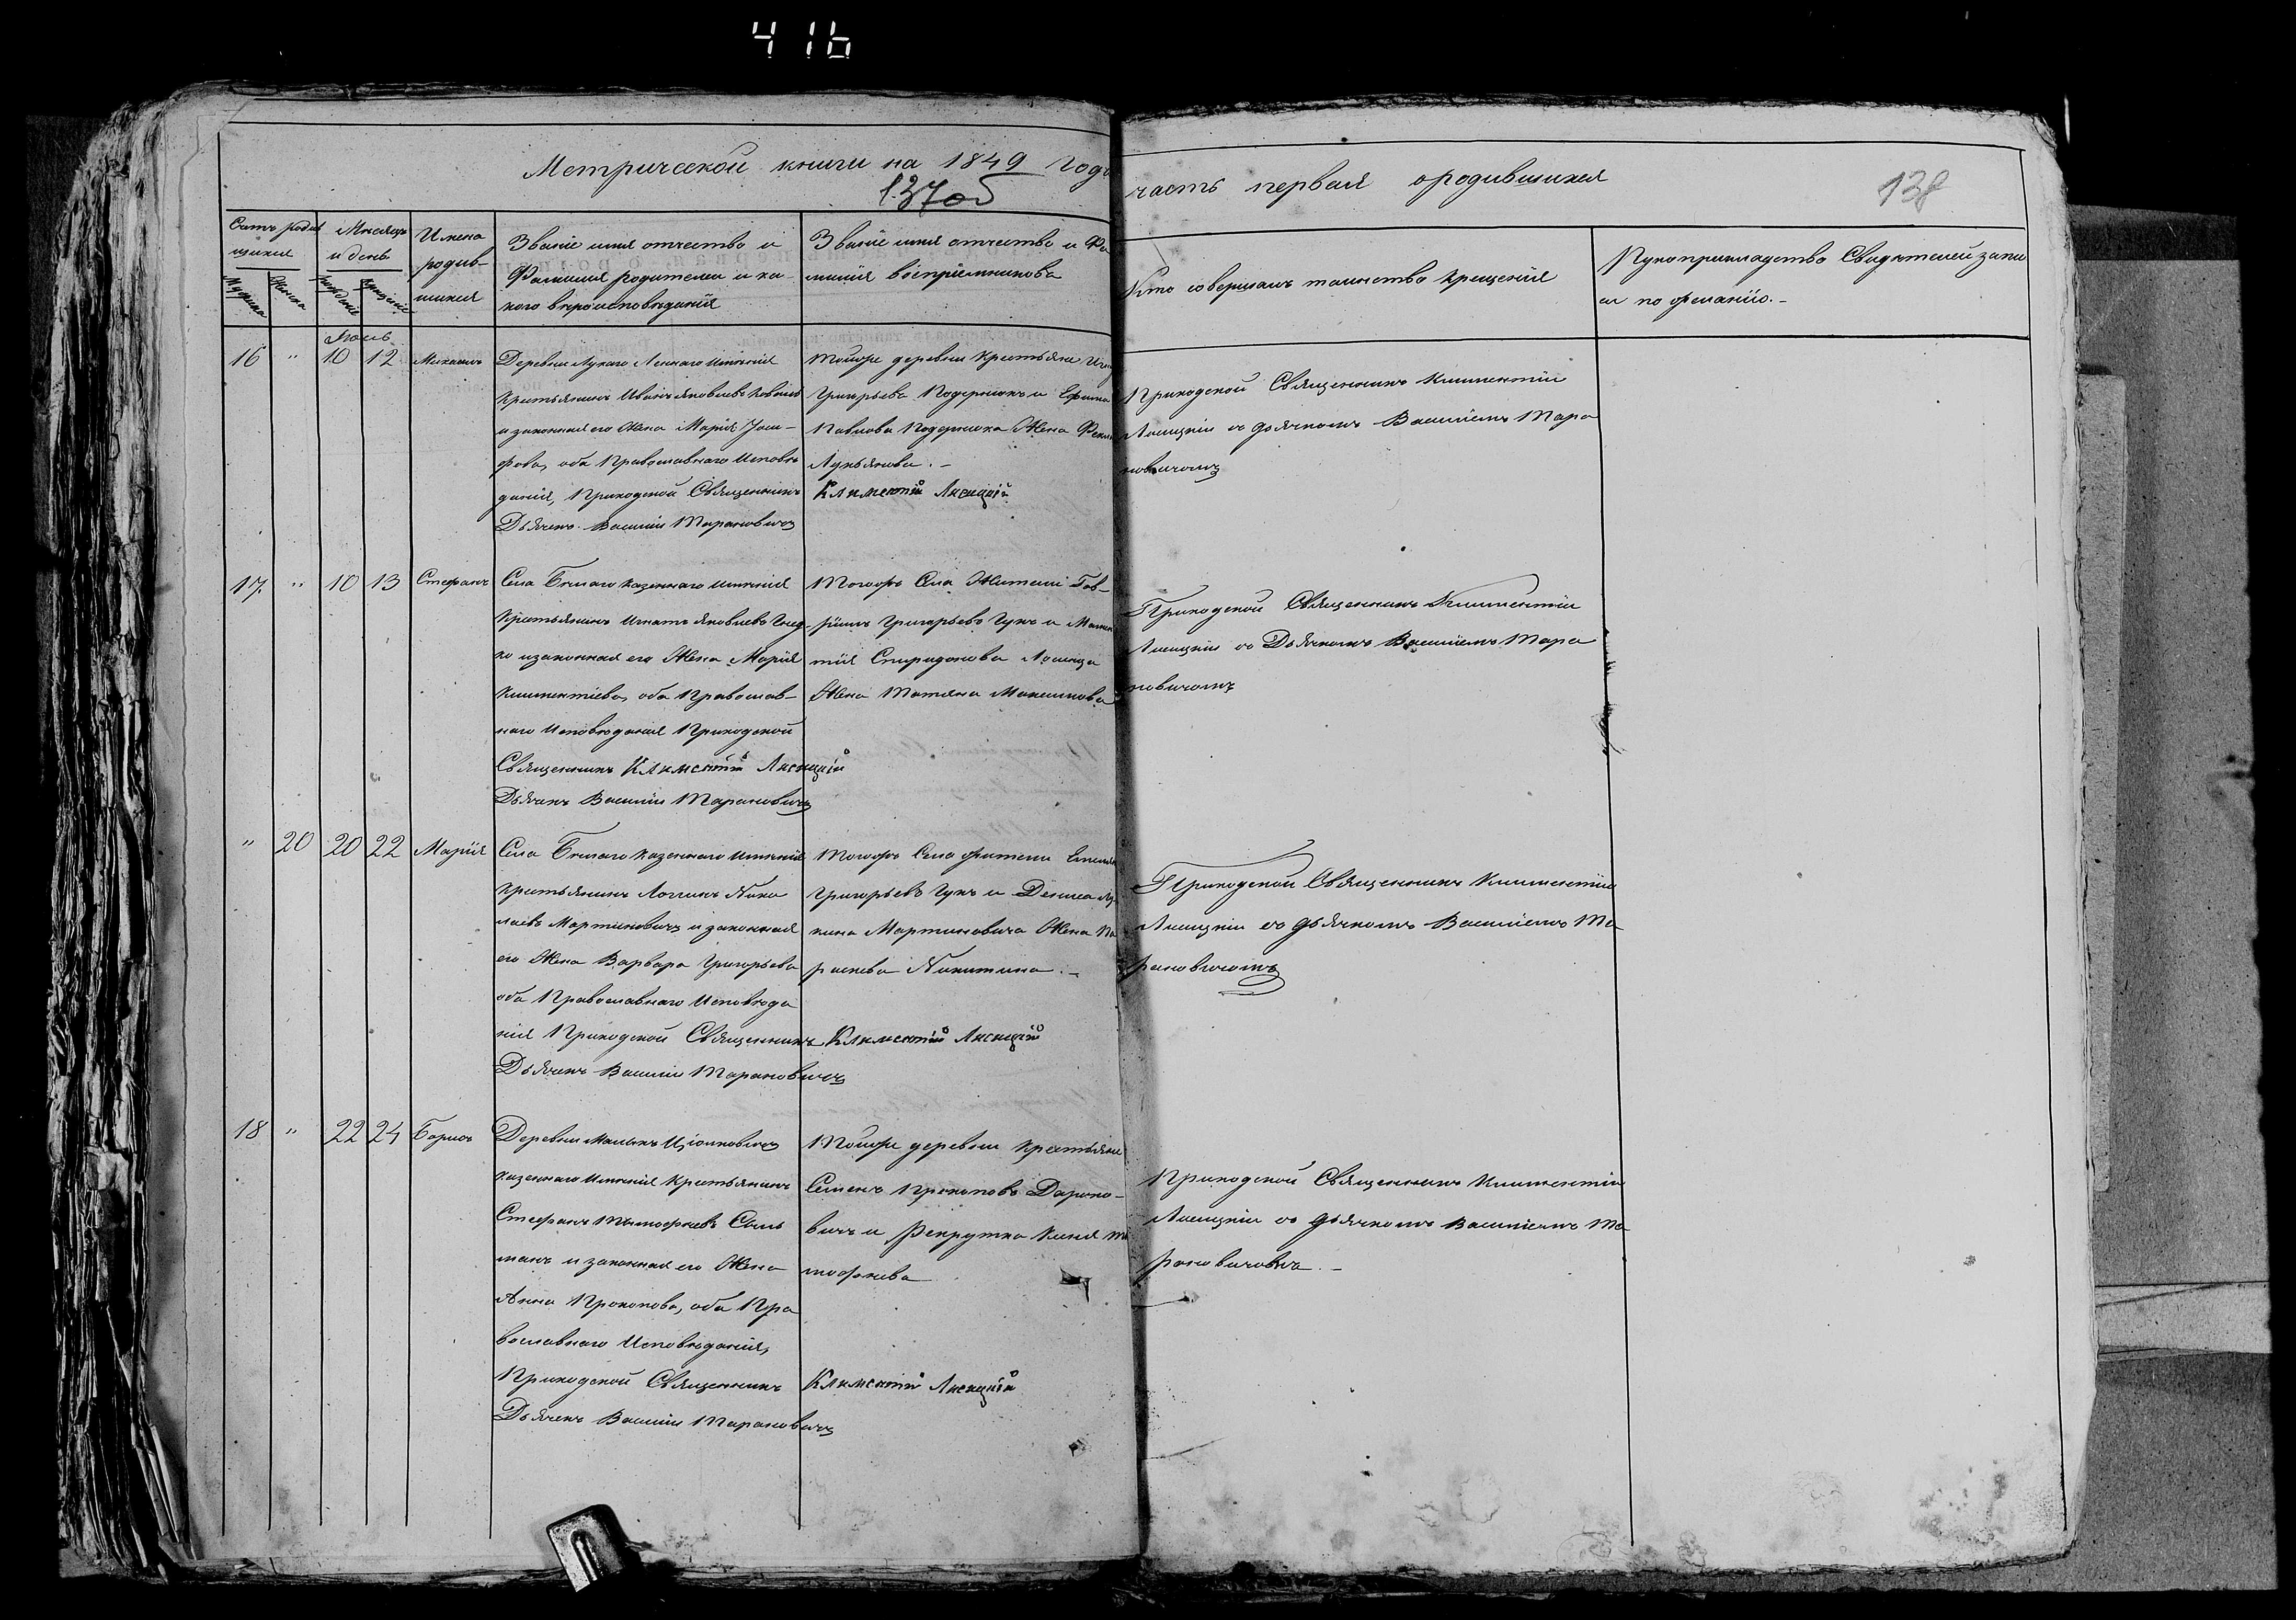 416
Метрической книги на 1849 годъ
137об
часть первая ородившихся
138
Счетъ родив
шихся
Мѣсяцъ
и день
Имена
родив-
шихся
Званіе имя отчество и
Фамилія родителей и ка-
кого вѣроисповѣданія
Званіе имя отчество и Фа
милія воспріемниковъ
Кто совершалъ таинство крещенія
Рукоприкладство Свидѣтелей запи
си по желанію.-
Мужска
Женска
Рожденія
Крещенія
16 " 10 12 Михаилъ
Деревни Лукаго имѣнія
Крестьянинъ Иванъ Яковлевъ
и законная его Жена Марія
оба Православнаго Исповѣ
данія, Приходской Священникъ
Дьячекъ Василій Тарановичъ
Тойже деревни Крестьяне
Григорьевъ и
Павлова Жена
Лукьянова.-
Климентій Лисицкій
Приходской Священникъ Климентій
Лисицкій съ дьячкомъ Василіемъ Тара
новичомъ
17. " 10 13 Стефанъ
Села Бѣлаго казеннаго имѣнія
Крестьянинъ Игнатъ Яковлевъ
ко изаконная его Жена Марія
Климентіева, оба Православ-
наго Исповѣданія Приходской
Священникъ Климентій Лисицкій
Дьячекъ Василій Тарановичъ
Тогожъ Села Жители Гав-
ріилъ Григорьевъ Гукъ и
Спиридонова
Жена Татяна Максимова
Приходской Священникъ Климентій
Лисицкій съ Дьячкомъ Василіемъ Тара
новичомъ
" 20 20 22 Марія
Села Бѣлаго казеннаго имѣнія
Крестьянинъ Логинъ Нико
лаевъ Мартиновичъ и законная
его Жена Варвара Григорьева
оба Православнаго Исповѣда
нія Приходской Священникъ
Климентій Лисицкій
Дьячекъ Василій Тарановичъ
Тогожъ Села жители
Григорьевъ Гукъ и Дениса
кина Мартиновича Жена Па
раскева Никитина.-
Приходской Священникъ Климентій
Лисицкій съ дьячкомъ Василіемъ Та
рановичомъ
18 " 22 24 Борисъ
Деревни Малыхъ Цѣпковичъ
казеннаго имѣнія Крестьянинъ
Стефанъ Тимофѣевъ Сали
манъ и законная его Жена
Анна Прокопова, оба Пра
вославнаго Исповѣданія,
Приходской Священникъ
Климентій Лисицкій
Дьячекъ Василій Тарановичъ
Тойже деревни Крестьяне
Семенъ Прокоповъ Дороко-
вичъ и Рекрутка Ти
мофѣева
Приходской Священникъ Климентій
Лисицкій съ дьячкомъ Василіемъ Та
рановичомъ.-